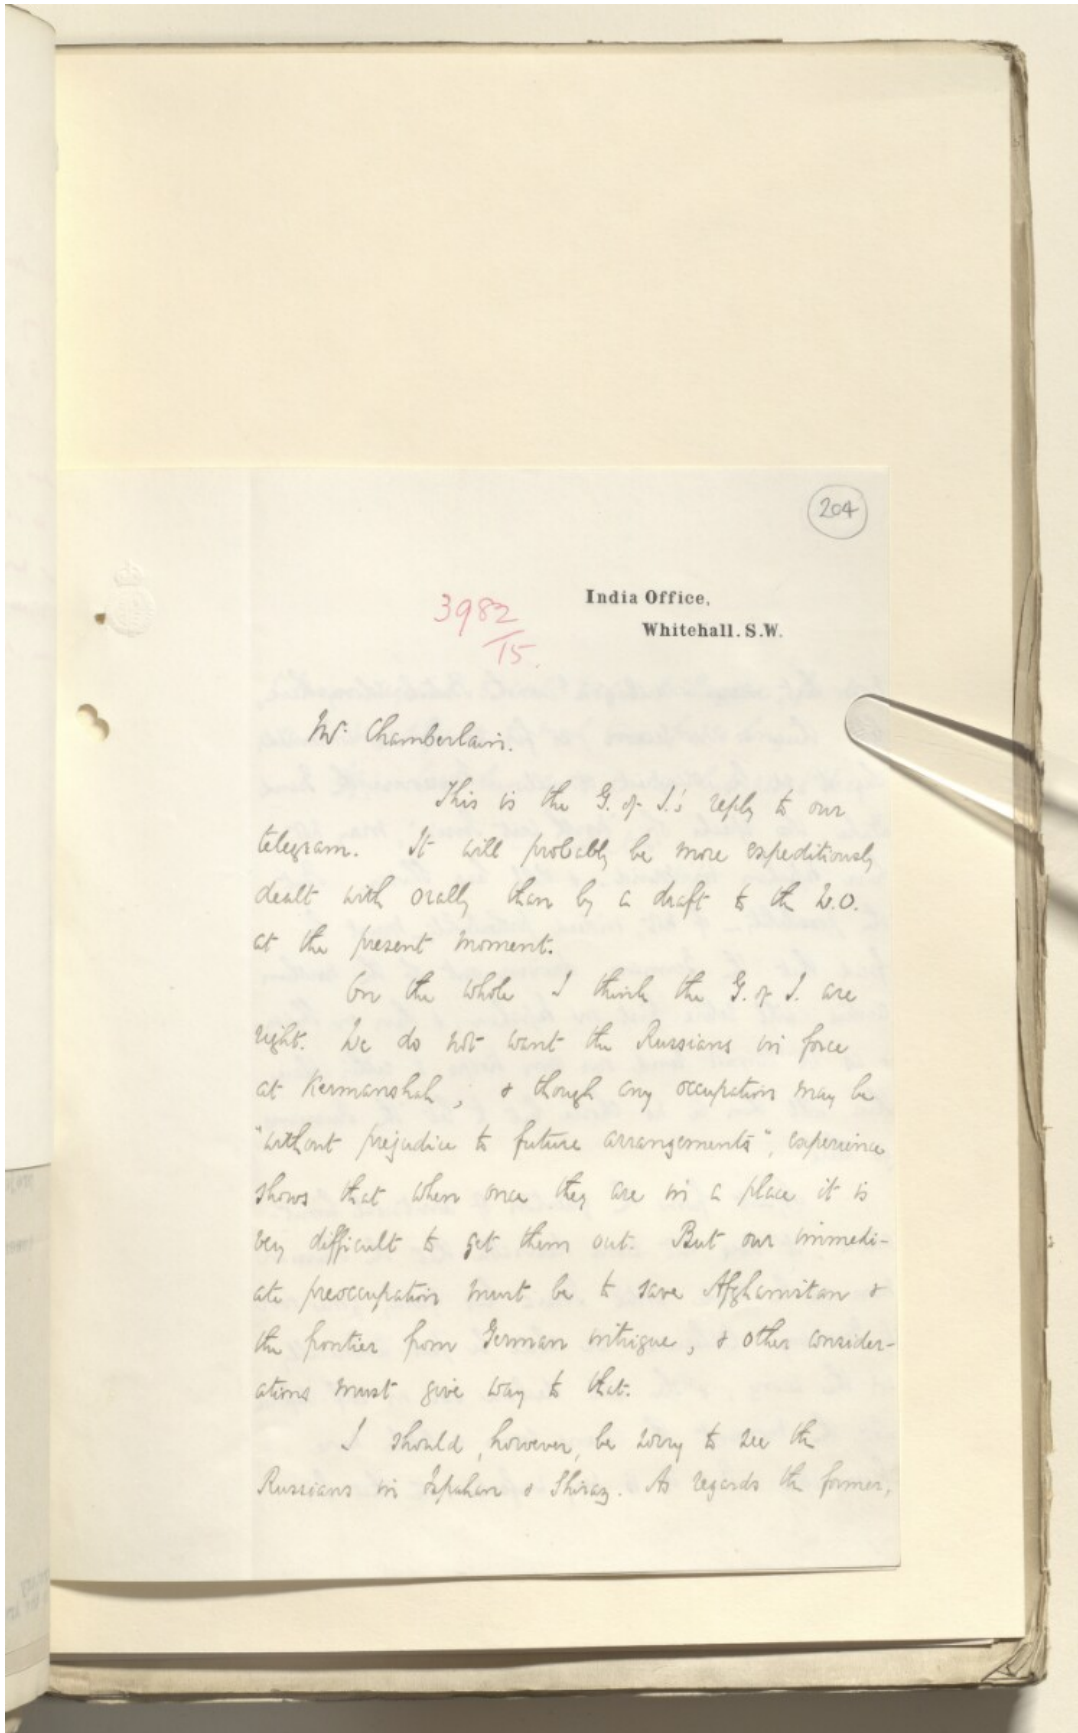 204
3982/15.
India Office,
Whitehall. S.W.
Mr Chamberlain.
This is the G. of I.'s reply to our
telegram. It will probably be more expeditiously
dealt with orally than by a draft to the W.O.
at the present moment.
On the whole I think the G. of I. are
right. We do not want the Russians in force
at Kermanshah, & though any occupation may be
"without prejudice to future arrangements", experience
shows that when once they are in a place it is
very difficult to get them out. But our immedi-
ate preoccupation must be to save Afghanistan &
the frontier from German intrigue, & other consider-
ations must give way to that.
I should, however, be sorry to see the
Russians in Ispahan & Shiraz. As regards the former,